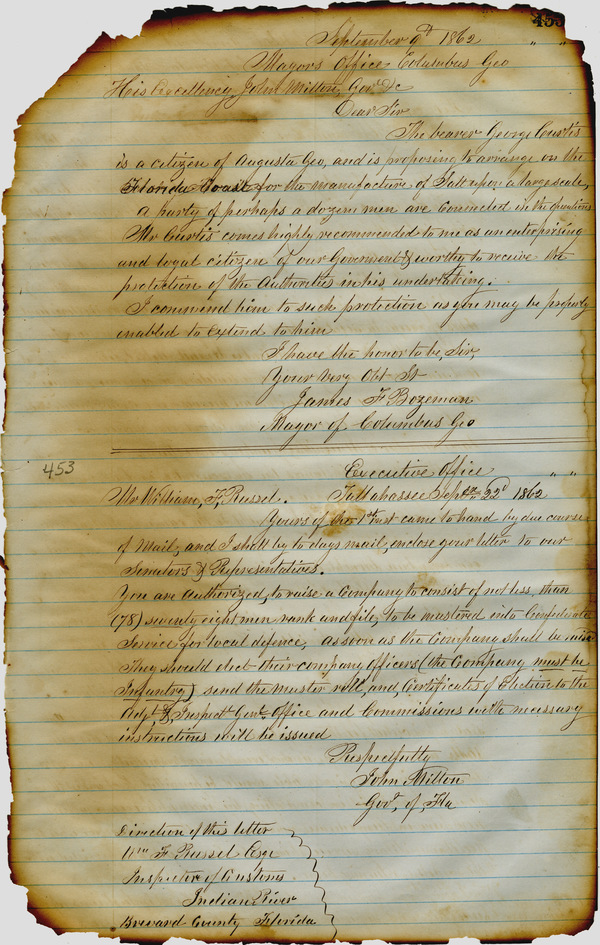 453
September 9th 1862 " "
Mayors Office Columbus Geo
His Excellency, John Milton, Govr &c
Dear Sir
The bearer George Curtis
is a citizen of Augusta Geo, and is proposing to arrange on the
Florida Coast for the manufacture of Salt upon a large scale,
a party of perhaps a dozen men are connected in the
Mr Curtis comes highly recommended to me as an enterprising
and loyal citizen of our Goverment & worthy to receive the
protection of the Authorities in his undertaking.
I commend him to such protection as you may be properly
enabled to extend to him
I have the honor to be, Sir,
Your Very Obt St
James F Bozeman
Mayor of Columbus Geo
453
Executive Office " "
Mr William, F, Russel. Tallahassee Sept 22d 1862
Yours of the 1st Inst came to hand by due course
of Mail, and I shall by to days mail, enclose your letter to our
Senators & Representatives.
You are Authorized, to raise a Company to consist of not less, than
(78) seventy eight men rank and file, to be mustered into Confederate
Service for local defence, as soon as the Company shall be raised
They should elect their company officers (the Company must be
Infantry) send the muster roll, and Certificates of Election to the
Adjt, & Inspect. Genl. Office and Commissions with necessary
instructions will be issued
Respectfully
John Milton
Govr, of, Fla
Direction of this letter
Wm F Russel Esqr
Inspector of Customs
Indian River
Brevard County Florida